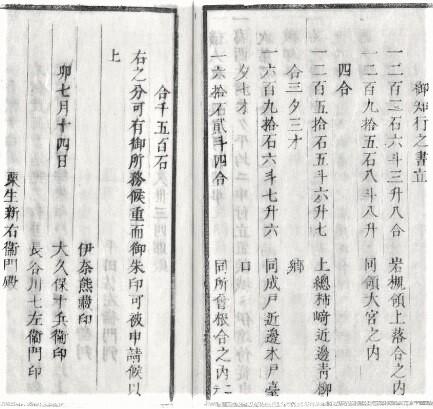 御知行之書立
一二百三石六斗三升八合　岩槻領上落合之内
一二百九拾五石八斗八升　同領大宮之内
四合
一二百五拾石五斗六升七　上總柿﨑近邊靑柳
合三夕三才　鄕
一六百九拾石六斗七升六　同成戸近邊木戸臺
夕
一六拾石貳斗四合　同所曾根合之内ニテ
合千五百石
右之分可有御所務候重而御朱印可被申請候以
上
卯七月十四日
伊奈熊藏印
大久保十兵衞印
長谷川七左衞門印
粟生新右衞門殿